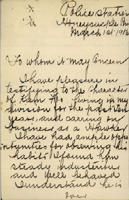 Police Station
March 1st 1916
To whom it may Concern
I have pleasure in
testifying to the character
of                 living in my
division for the past
years, and carrying on
business as a Hawker
I have had many oppor-
tunities for observing his
habits & found him
steady industrious
and well behaved
I understand he is